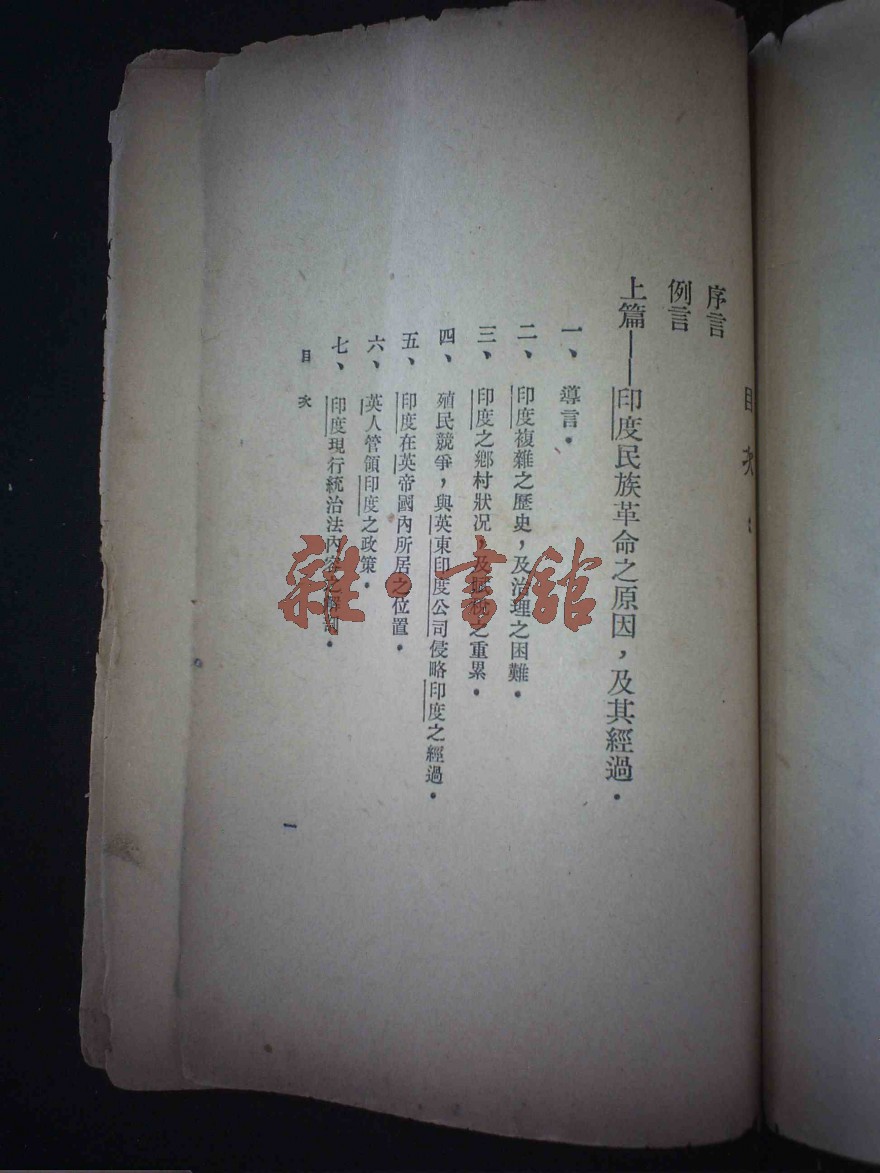 目次
序言
例言
上篇——印度民族革命之原因，及其經過．
一、導言．
二、印度複雜之歷史，及治理之困難．
三、印度之鄉村狀況，及賦稅之重累．
四、殖民競爭，與英東印度公司侵略印度之經過．
五、印度在英帝國內所居之位置．
六、英人管領印度之政策．
七、印度現行統治法內容之解剖．
目次
一
雜·書館